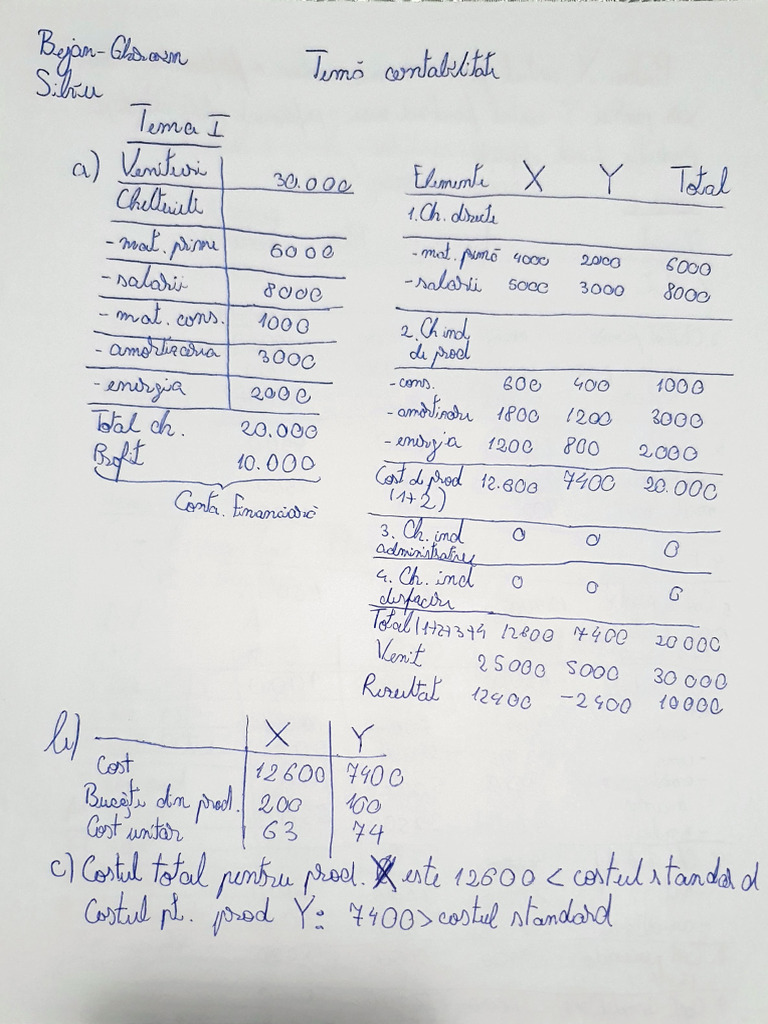 Bejan-
Silviu
Temă contabilitate
Tema I
a) Venituri 30.000
Cheltuieli
- mat. prime 6000
- salarii 8000
- mat. cons. 1000
- amortizarea 3000
- energia 2000
Total ch. 20.000
Profit 10.000
Conta. Financiară
Elemente X Y Total
1. Ch. directe
- mat. primă 4000 2000 6000
- salarii 5000 3000 8000
2. Ch ind
de prod
- cons. 600 400 1000
- amortizare 1800 1200 3000
- energia 1200 800 2000
Cost de prod 12.600 7400 20.000
(1+2)
3. Ch. ind 0 0 0
administrative
4. Ch. ind 0 0 0
desfacere
Total (1+2+3+4 12600 7400 20 000
Venit 25000 5000 30 000
Rezultat 12400 -2400 10000
b) X Y
Cost 12600 7400
Bucăți din prod. 200 100
Cost unitar 63 74
c) Costul total pentru prod. X este 12600 < costul standard
Costul pt. prod Y: 7400 > costul standard